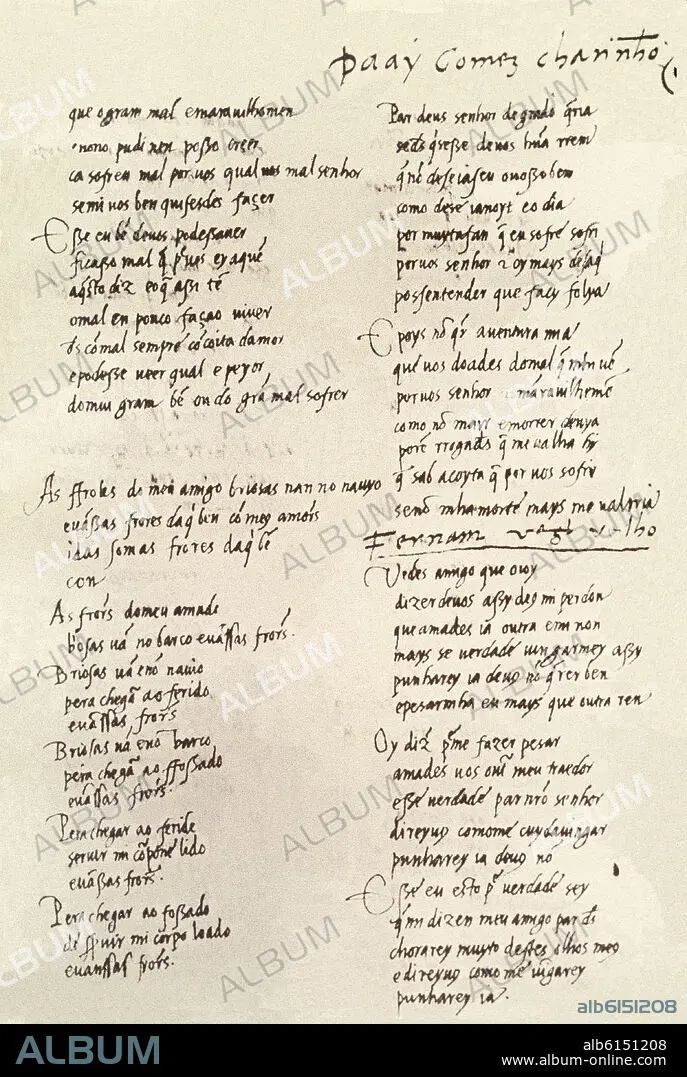 Paay Gomez charinho
que o gram mal e maravilhomen
nono pudi nen posso creer
ca sofren mal por vos qual mal senhor
semi vos ben quisesdes façer
E sse eu bẽ devos podessaver
ficasso mal q̃ ey aquẽ
aqsto diz eoq̃ assi tẽ
omal en pouco façao viver
cõmal sempre cõ coita damor
epodesse veer qual e peyor
domui gram bẽ ou do grã mal sofrer
As ffroles do meu amigo briosas nan no navyo
evãssas frores daq̃ ben cõ meus amores
idas somas frores daq̃ bẽ
con
As frors domeu amado
bosas vã no barco evãssas frors.
Briosas vã enõ navio
pera chegã ao ferido
evãssas frors
Briosas vã enõ barco
pera chegã ao ffossado
evãssas frors.
Pera chegar ao feride
servir mi corpo ne lido
evãssas frors.
Pera chegar ao fossado
de servir mi corpo loado
evanssas frors.
Par deus senhor degrado q̃ria
seds q̃sesse devos hũa rrem
q̃ nõ desejaseu ovossoben
como desejanoyt e o dia
por muytafan q̃ eu sofrẽ sofri
por vos senhor oy mays
possentender que faç folya
E poys nõ q̃r aventura mia
que vos doades domal q̃ mh vẽ
por vos senhor maravilheme
como nõ mayr emorrer
porẽ rrogads q̃ me valha
q̃ sab acoyta q̃ por vos sofri
senõ mha morte mays me valrria
Fernam velho
Vedes amigo que oioy
dizer devos assy deus mi perdon
que amades ja outra emi non
mays se verdade vingarmey assy
punharey ja devos nõ q̃rer ben
epesarmha en mays que outra ren
Oy diz pme fazer pesar
amades vos outr meu traedor
esse verdade par nrõ senhor
direyvos comome cuydavingar
punharey ja devos nõ
E sse eu esto p verdade sey
q̃ mi dizen meu amigo par ds
chorarey muyto destes olhos meus
edireyvos como me vigarey
punharey ja.
ALBUM
alb6151208
ALBUM
alb6151208
www.album-online.com